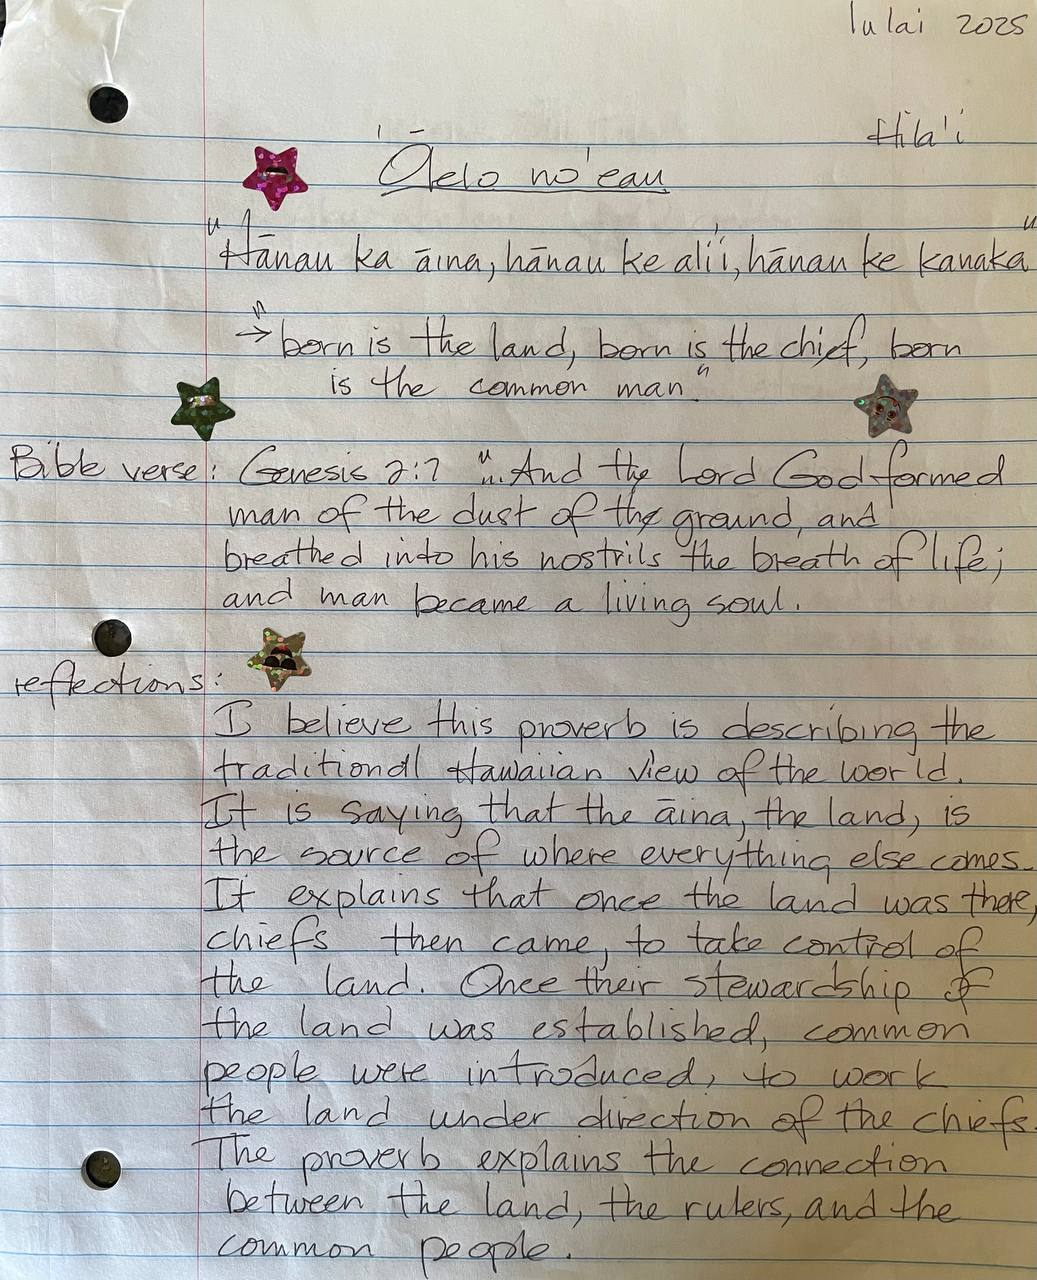 Iulai 2025
Hila'i
'Ōlelo no'eau
"Hānau ka āina, hānau ke ali'i, hānau ke kanaka"
→ "born is the land, born is the chief, born
is the common man"
Bible verse: Genesis 2:7 "... And the Lord God formed
man of the dust of the ground, and
breathed into his nostrils the breath of life;
and man became a living soul.
reflections:
I believe this proverb is describing the
traditional Hawaiian view of the world.
It is saying that the āina, the land, is
the source of where everything else comes.
It explains that once the land was there,
chiefs then came, to take control of
the land. Once their stewardship of
the land was established, common
people were introduced, to work
the land under direction of the chiefs.
The proverb explains the connection
between the land, the rulers, and the
common people.